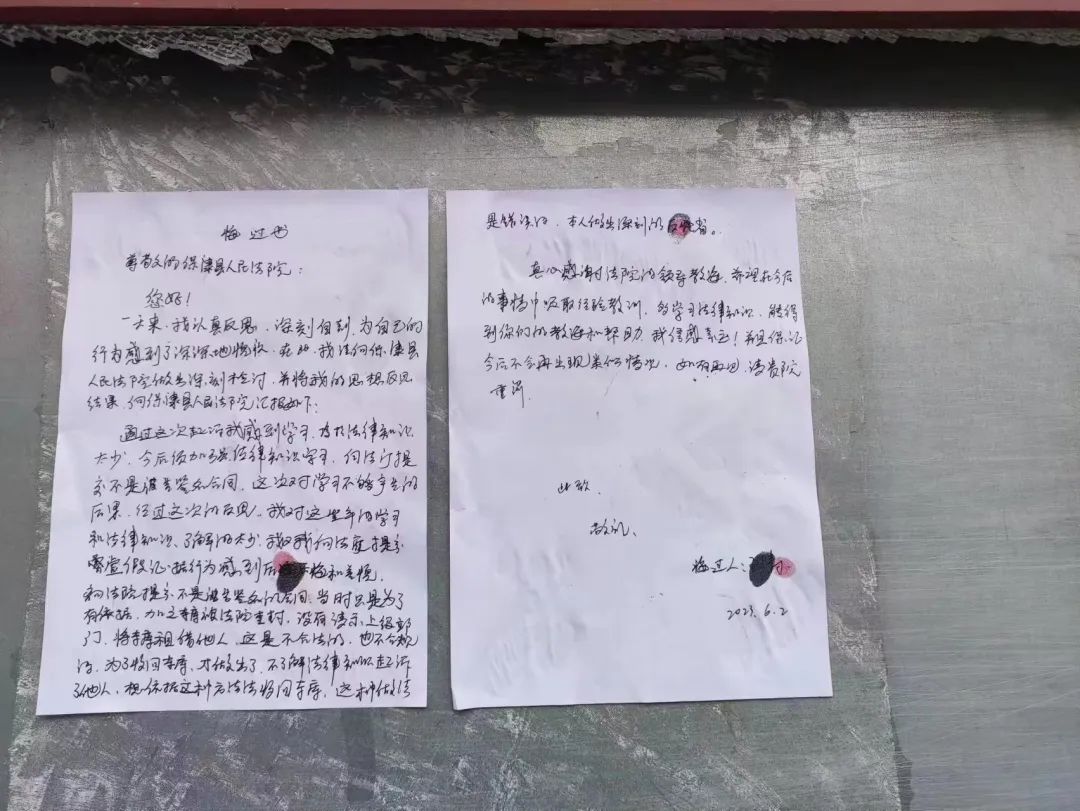 悔过书
尊敬的保德县人民法院：
您好！
一天来，我认真反思，深刻自刻，为自己的
行为感到了深深地愧疚，在此，我法向保德县
人民法院做出深刻检讨，并将我的思想反思
结果，向保德县人民法院汇报如下：
通过这次起诉我感到学习，有于法律知识
太少，今后须加强法律知识学习，向法厅提
交不是被告签的合同，这次对学习不够产生的
后果，经过这次的反思，我对这些年的学习
和法律知识、了解的太少，我对我向法庭提交
虚假证据行为感到后悔和羞愧，
向法院提交不是被告签的合同，当时只是为了
有依据，加之车库被法院查封，没有请示上级部
门，将车库租借他人，这是不合法的，也不合规
的，为了收回车库，才做出了，不了解法律知识起诉
了他人，想依据这种方法收回车库，这种做法
是错误的，本人做出深刻的反省。
真心感谢法院的领导教诲，希理在今后
的事情中吸取经验教训，多学习法律知识，能得
到你们的教诲和帮助，我倍感幸运！并且保证
今后不会再出现类似情况，如有再回，请贵院
重罚。
此致
敬礼
悔过人：
2023.6.2